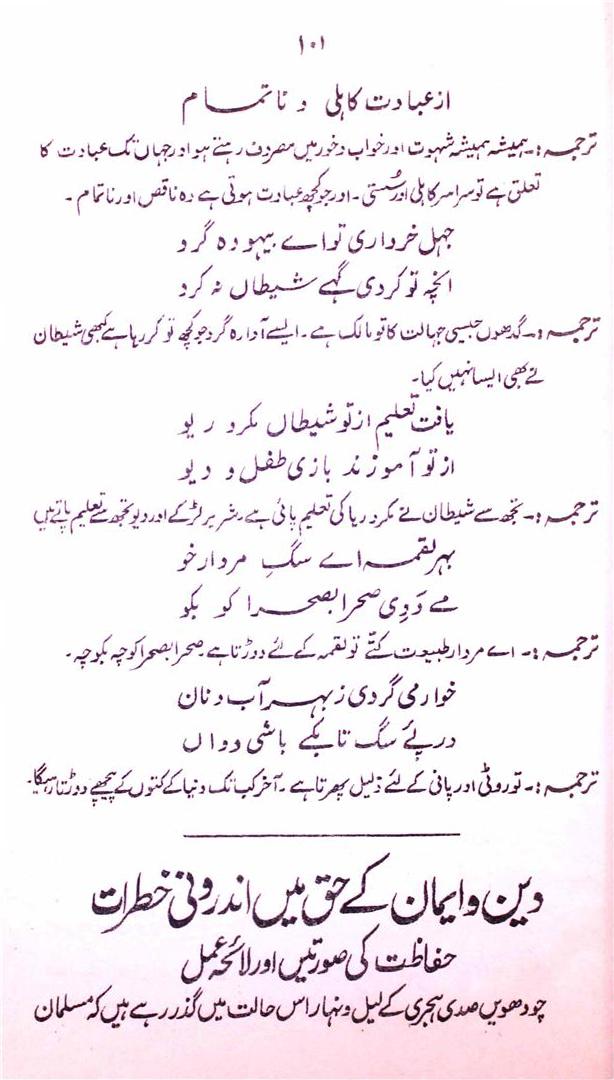 ۱۰۱
از عبادت کاہلی و ناتمام
ترجمہ :۔ ہمیشہ ہمیشہ شہوت اور خواب و خور میں مصروف رہتے ہو اور جہاں تک عبادت کا
تعلق ہے تو سراسر کاہلی اور سُستی ۔ اور جو کچھ عبادت ہوتی ہے وہ ناقص اور ناتمام ۔
جہل خرداری تو اے بیہودہ گرد
انچہ تو کردی گہے شیطاں نہ کرد
ترجمہ :۔ گدھوں جیسی جہالت کا تو مالک ہے ۔ ایسے آوارہ گرد جو کچھ تو کر رہا ہے کبھی شیطان
نے بھی ایسا نہیں کیا۔
یافت تعلیم از تو شیطاں مکر و ریو
از تو آموزند بازی طفل و دیو
ترجمہ :۔ تجھ سے شیطان نے مکر و ریا کی تعلیم پائی ہے ۔ شریر لڑکے اور دیو تجھ سے تعلیم پاتے ہیں
بہر لقمہ اے سگِ مردار خو
مے دَوِی صحرا بصحرا کو بکو
ترجمہ :۔ اے مردار طبیعت کتّے تو لقمہ کے لئے دوڑتا ہے ۔ صحرا بصحرا کوچہ بکوچہ ۔
خوار می گردی ز بہر آب و نان
در پئے سگ تا بکے باشی دواں
ترجمہ :۔ تو روٹی اور پانی کے لئے ذلیل پھرتا ہے ۔ آخر کب تک دنیا کے کتوں کے پیچھے دوڑتا رہیگا۔
دین و ایمان کے حق میں اندرونی خطرات
حفاظت کی صورتیں اور لائحہ عمل
چودھویں صدی ہجری کے لیل و نہار اس حالت میں گذر رہے ہیں کہ مسلمان